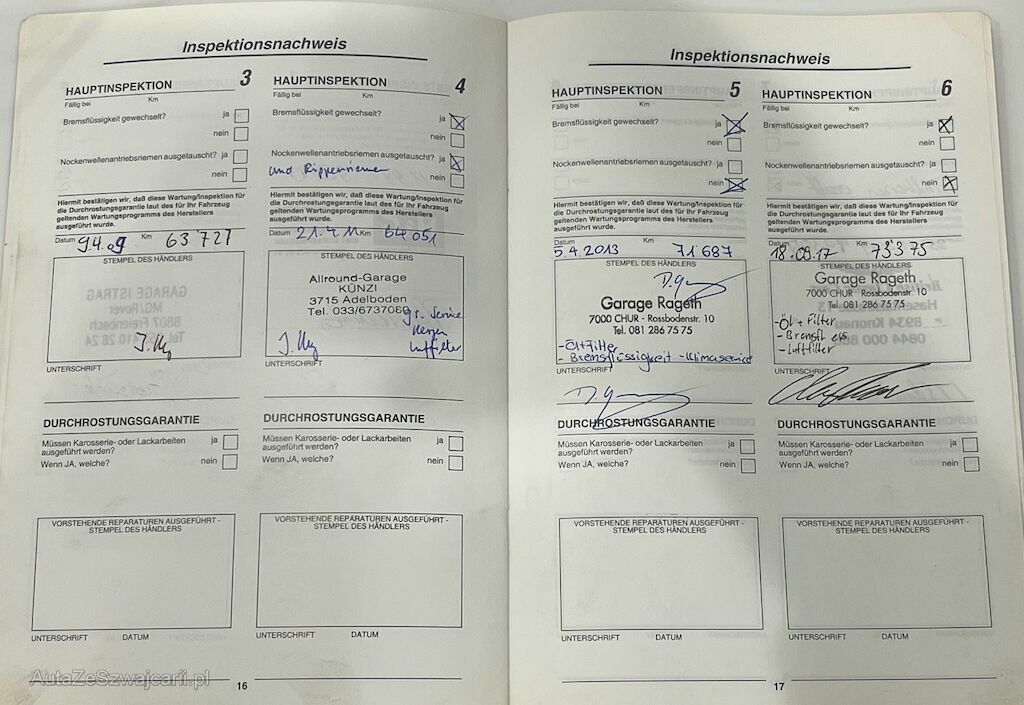 Inspektionsnachweis
HAUPTINSPEKTION 3
Fällig bei Km
Bremsflüssigkeit gewechselt? ja
nein
Nockenwellenantriebsriemen ausgetauscht? ja
nein
Hiermit bestätigen wir, daß diese Wartung/Inspektion für
die Durchrostungsgarantie laut des für Ihr Fahrzeug
geltenden Wartungsprogramms des Herstellers
ausgeführt wurde.
Datum 9.4.09 Km 63 727
STEMPEL DES HÄNDLERS
UNTERSCHRIFT
DURCHROSTUNGSGARANTIE
Müssen Karosserie- oder Lackarbeiten ja
ausgeführt werden?
Wenn JA, welche? nein
VORSTEHENDE REPARATUREN AUSGEFÜHRT -
STEMPEL DES HÄNDLERS
UNTERSCHRIFT DATUM
HAUPTINSPEKTION 4
Fällig bei Km
Bremsflüssigkeit gewechselt? ja
nein
Nockenwellenantriebsriemen ausgetauscht? ja
und Rippenriemen nein
Hiermit bestätigen wir, daß diese Wartung/Inspektion für
die Durchrostungsgarantie laut des für Ihr Fahrzeug
geltenden Wartungsprogramms des Herstellers
ausgeführt wurde.
Datum 21.4.11 Km 64 051
STEMPEL DES HÄNDLERS
Allround-Garage
KÜNZI
3715 Adelboden
Tel. 033/6737089
gr. Service
Kerzen
Luftfilter
UNTERSCHRIFT
DURCHROSTUNGSGARANTIE
Müssen Karosserie- oder Lackarbeiten ja
ausgeführt werden?
Wenn JA, welche? nein
VORSTEHENDE REPARATUREN AUSGEFÜHRT -
STEMPEL DES HÄNDLERS
UNTERSCHRIFT DATUM
16
Inspektionsnachweis
HAUPTINSPEKTION 5
Fällig bei Km
Bremsflüssigkeit gewechselt? ja
nein
Nockenwellenantriebsriemen ausgetauscht? ja
nein
Hiermit bestätigen wir, daß diese Wartung/Inspektion für
die Durchrostungsgarantie laut des für Ihr Fahrzeug
geltenden Wartungsprogramms des Herstellers
ausgeführt wurde.
Datum 5.4.2013 Km 71 687
STEMPEL DES HÄNDLERS
Garage Rageth
7000 CHUR - Rossbodenstr. 10
Tel. 081 286 75 75
- Öl+Filter
- Bremsflüssigkeit - Klimaservice
UNTERSCHRIFT
DURCHROSTUNGSGARANTIE
Müssen Karosserie- oder Lackarbeiten ja
ausgeführt werden?
Wenn JA, welche? nein
VORSTEHENDE REPARATUREN AUSGEFÜHRT -
STEMPEL DES HÄNDLERS
UNTERSCHRIFT DATUM
HAUPTINSPEKTION 6
Fällig bei Km
Bremsflüssigkeit gewechselt? ja
nein
Nockenwellenantriebsriemen ausgetauscht? ja
nein
Hiermit bestätigen wir, daß diese Wartung/Inspektion für
die Durchrostungsgarantie laut des für Ihr Fahrzeug
geltenden Wartungsprogramms des Herstellers
ausgeführt wurde.
Datum 18.09.17 Km 73375
STEMPEL DES HÄNDLERS
Garage Rageth
7000 CHUR Rossbodenstr. 10
Tel. 081 286 75 75
- Öl + Filter
- Bremsfl.
- Luftfilter
UNTERSCHRIFT
DURCHROSTUNGSGARANTIE
Müssen Karosserie- oder Lackarbeiten ja
ausgeführt werden?
Wenn JA, welche? nein
VORSTEHENDE REPARATUREN AUSGEFÜHRT -
STEMPEL DES HÄNDLERS
UNTERSCHRIFT DATUM
17
AutaZeSzwajcarii.pl